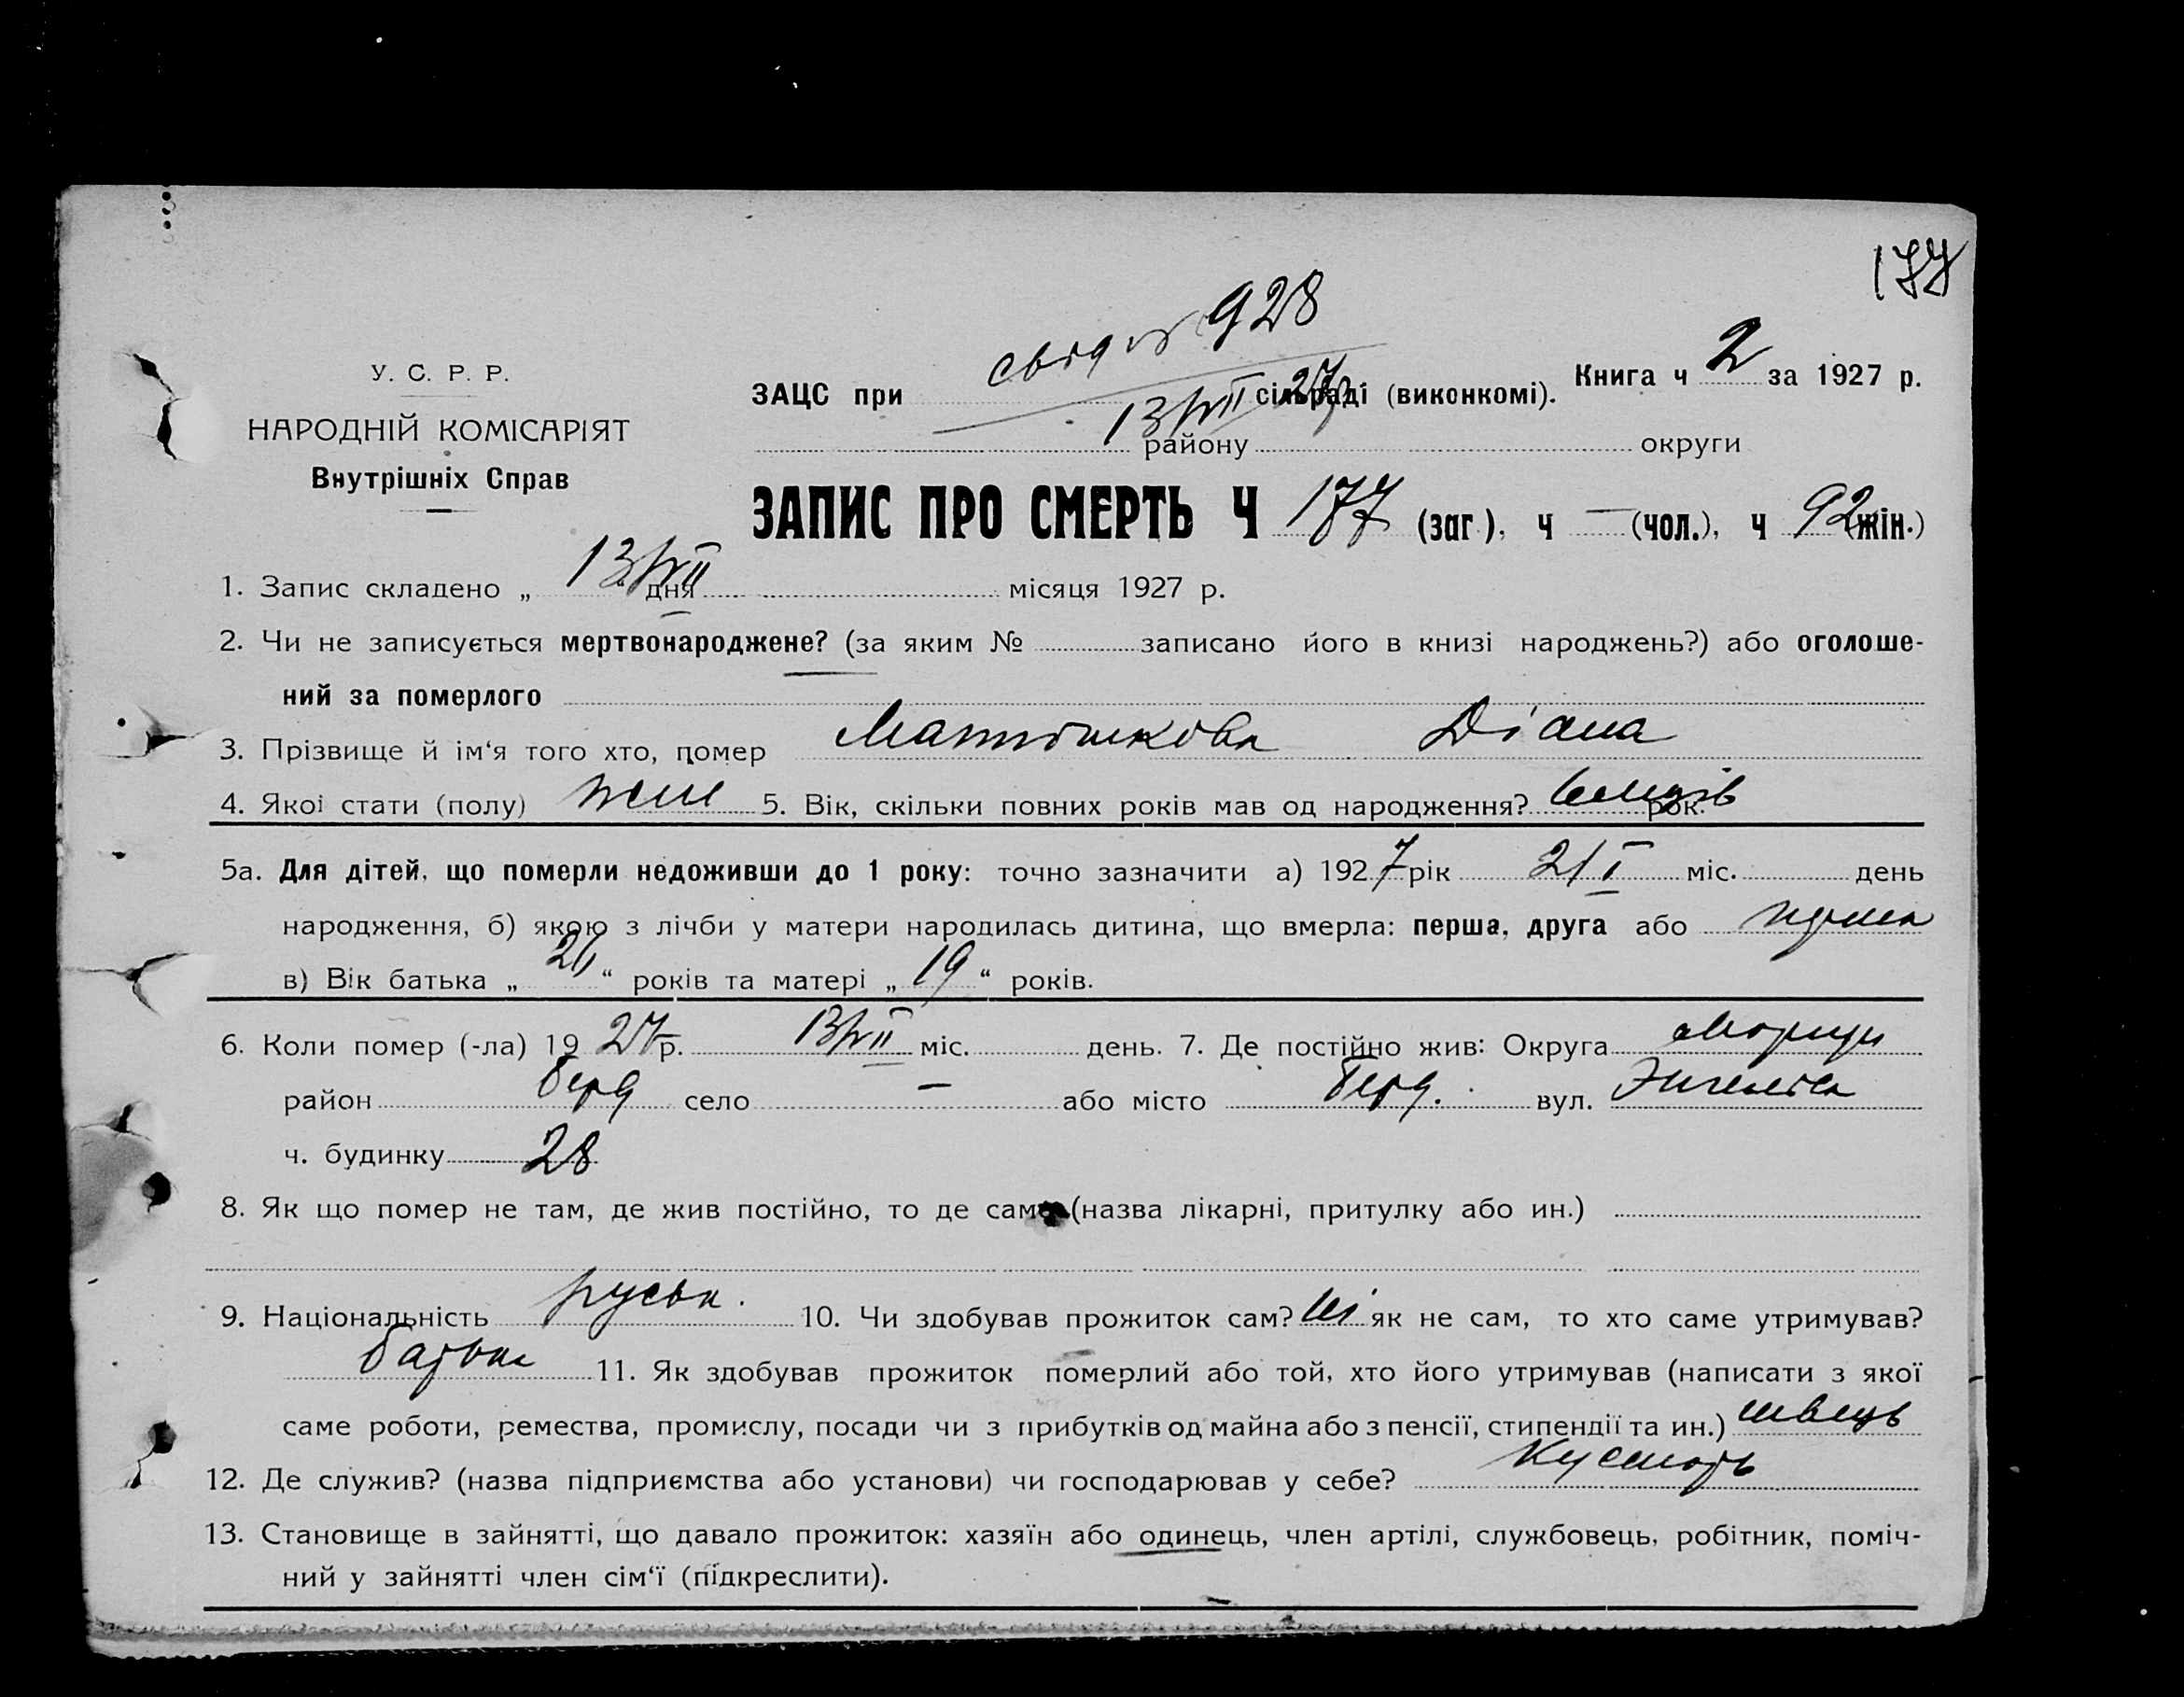 177
свід № 928
У. С. Р. Р.
Книга ч 2 за 1927 р.
ЗАЦС при сільраді (виконкомі).
13/VII 27
НАРОДНІЙ КОМІСАРІЯТ
району округи
Внутрішніх Справ
ЗАПИС ПРО СМЕРТЬ Ч 177 (заг.), ч — (чол.), ч 92 (жін.)
1. Запис складено „ 13/VII “ дня місяця 1927 р.
2. Чи не записується мертвонароджене? (за яким № записано його в книзі народжень?) або оголоше-
ний за померлого
3. Прізвище й ім‘я того хто, помер Матюшкова Діана
4. Якої стати (полу) жін 5. Вік, скільки повних років мав од народження? рок.
5а. Для дітей, що померли недоживши до 1 року: точно зазначити а) 1927 рік 21/I міс. день
народження, б) якою з лічби у матери народилась дитина, що вмерла: перша, друга або
в) Вік батька „ “ років та матері „ 19 “ років.
6. Коли помер (-ла) 1927 р. 13/VII міс. день. 7. Де постійно жив: Округа
район Берд село — або місто Берд. вул. Энгельса
ч. будинку 28
8. Як що помер не там, де жив постійно, то де саме (назва лікарні, притулку або ин.)
9. Національність руськ. 10. Чи здобував прожиток сам? Ні як не сам, то хто саме утримував?
батьки 11. Як здобував прожиток померлий або той, хто його утримував (написати з якої
саме роботи, ремества, промислу, посади чи з прибутків од майна або з пенсії, стипендії та ин.) швець
12. Де служив? (назва підприємства або установи) чи господарював у себе? Кустарь
13. Становище в зайнятті, що давало прожиток: хазяїн або одинець, член артілі, службовець, робітник, поміч-
ний у зайнятті член сім‘ї (підкреслити).